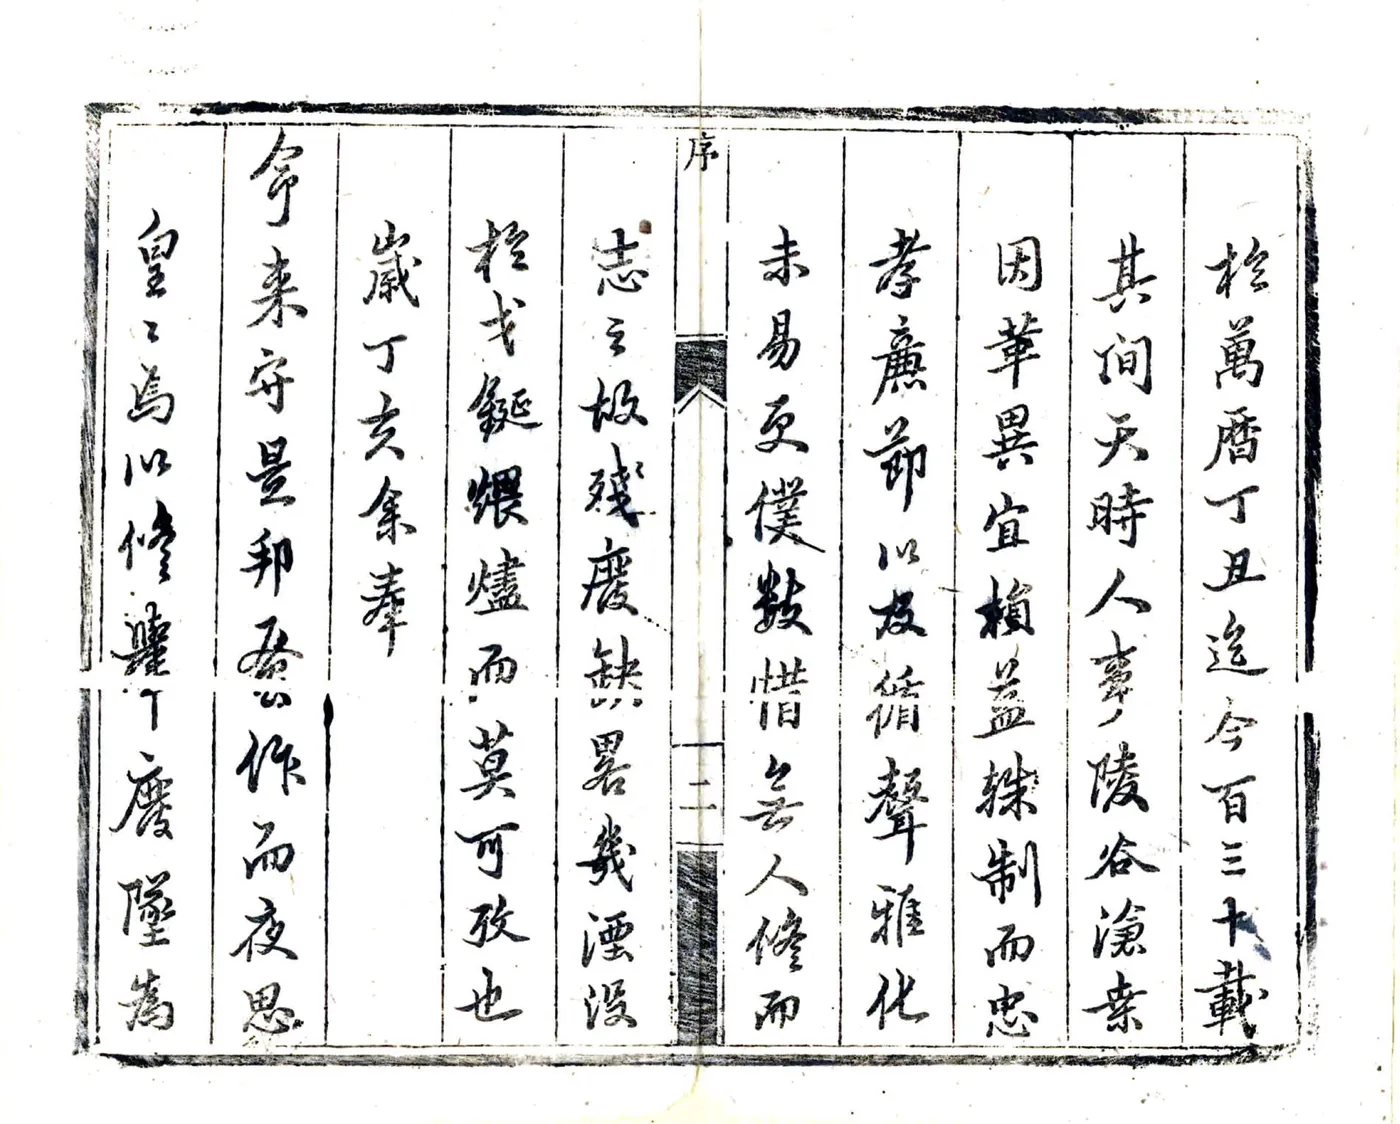 於萬曆丁丑迄今百三十載
其間天時人事陵谷滄桑
因革異宜損益殊制而忠
孝廉節以及循聲雅化
未易更僕數惜無人修而
序
二
志之故殘廢缺畧幾湮沒
於戈鋋煨燼而莫可攷也
歲丁亥余奉
命來守是邦蚤作而夜思
皇〻焉以修舉廢墜為